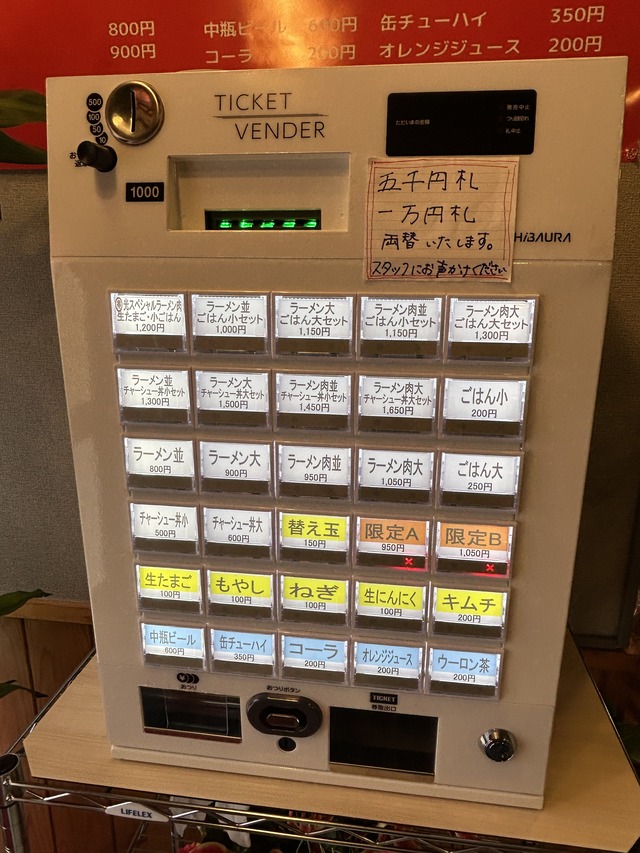 800円 中瓶ビール 600円 缶チューハイ 350円
900円 コーラ 200円 オレンジジュース 200円
500
100
50
10
TICKET
VENDER
1000
発売中止
つり銭切れ
札中止
五千円札
一万円札
両替いたします。
スタッフにお声かけください
HiBAURA
光スペシャルラーメン肉
生たまご・小ごはん
1,200円
ラーメン並
ごはん小セット
1,000円
ラーメン大
ごはん大セット
1,150円
ラーメン肉並
ごはん小セット
1,150円
ラーメン肉大
ごはん大セット
1,300円
ラーメン並
チャーシュー丼小セット
1,300円
ラーメン大
チャーシュー丼大セット
1,500円
ラーメン肉並
チャーシュー丼小セット
1,450円
ラーメン肉大
チャーシュー丼大セット
1,650円
ごはん小
200円
ラーメン並
800円
ラーメン大
900円
ラーメン肉並
950円
ラーメン肉大
1,050円
ごはん大
250円
チャーシュー丼小
500円
チャーシュー丼大
600円
替え玉
150円
限定A
950円
限定B
1,050円
生たまご
100円
もやし
100円
ねぎ
100円
生にんにく
100円
キムチ
200円
中瓶ビール
600円
缶チューハイ
350円
コーラ
200円
オレンジジュース
200円
ウーロン茶
200円
おつり
おつりボタン
TICKET
券取出口
LIFELEX